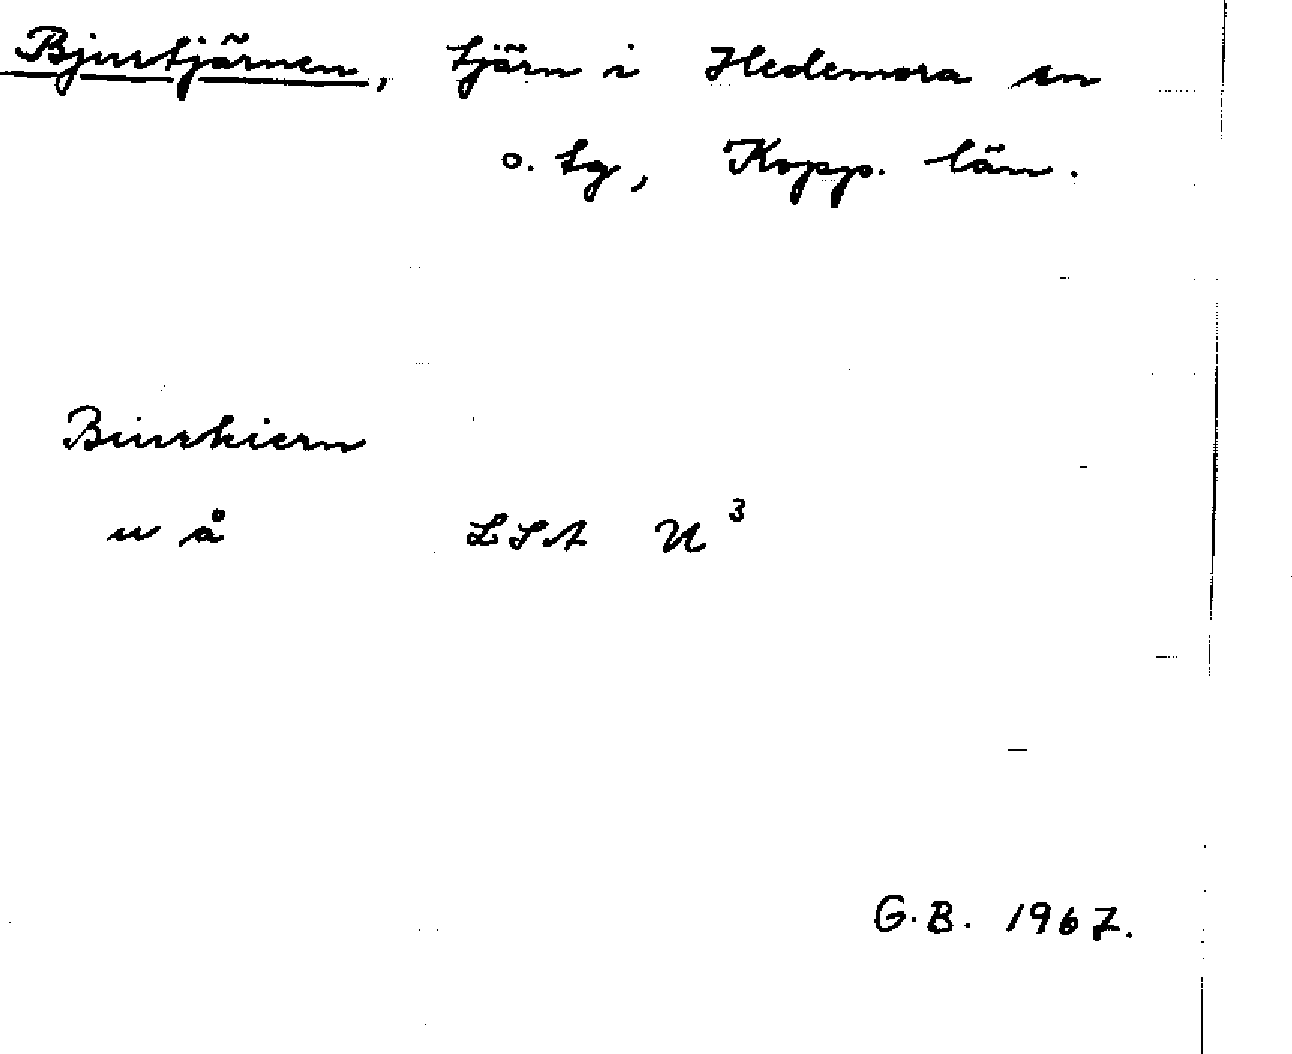 Bjurtjärnen, tjärn i Hedemora sn
o. tg, Kopp. län.
Biurkiern
u å LSA U³
G.B. 1967.